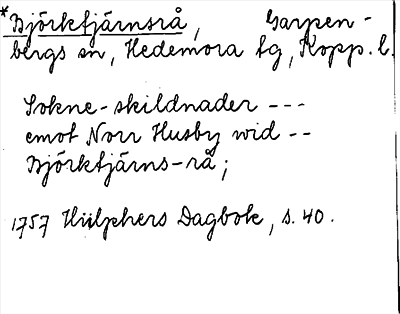 *Björktjärnsrå, Garpen-
bergs sn, Hedemora tg, Kopp. l.
Sokne-skildnader ---
emot Norr Husby wid --
Björktjärns-rå;
1757 Hülphers Dagbok, s. 40.